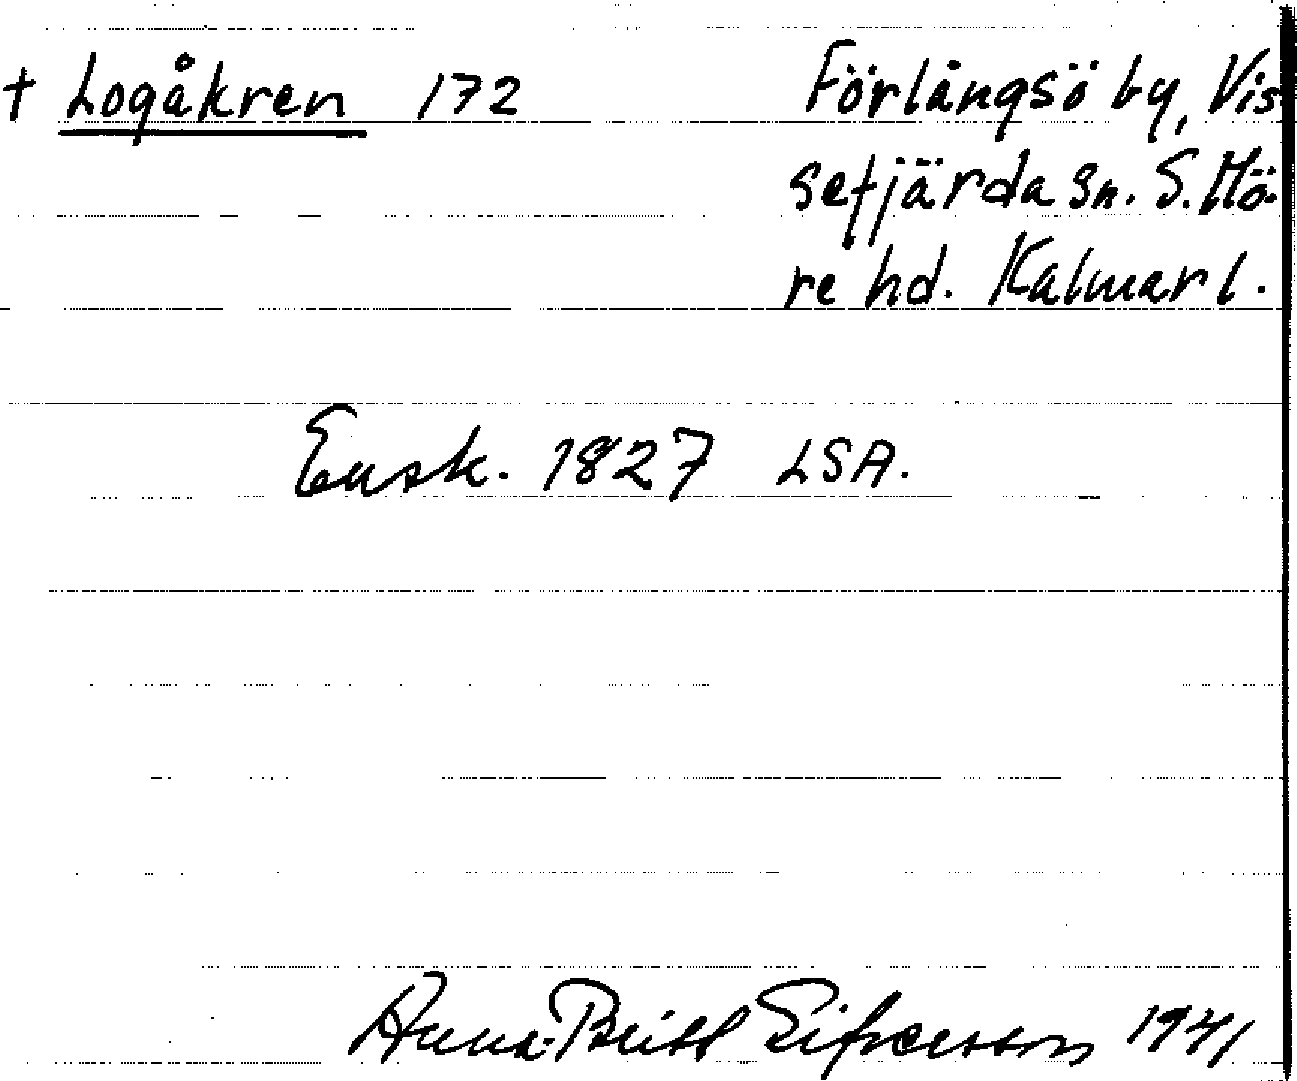 † Logåkren 172 Förlångsö by, Vis
sefjärda sn. S. Mö-
re hd. Kalmar l.
Ensk. 1827 LSA.
Anna-Britt 1941